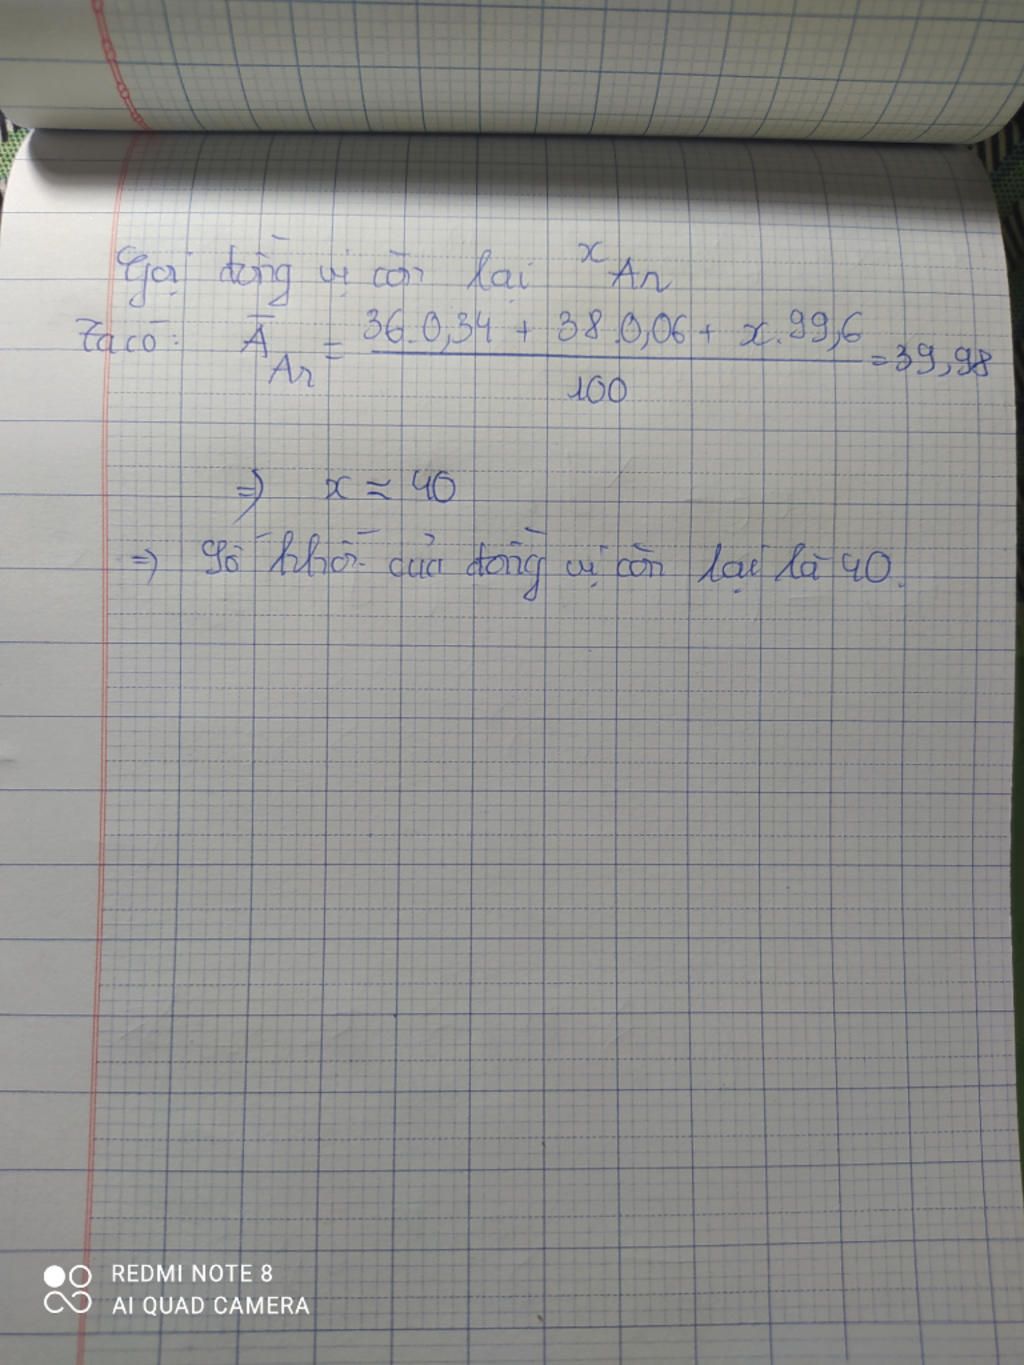 Gọi đồng vị còn lại ˣAr
Ta có: Ā_Ar = (36.0,34 + 38.0,06 + x.99,6) / 100 = 39,98
⇒ x ≈ 40
⇒ Số khối của đồng vị còn lại là 40.
REDMI NOTE 8
AI QUAD CAMERA